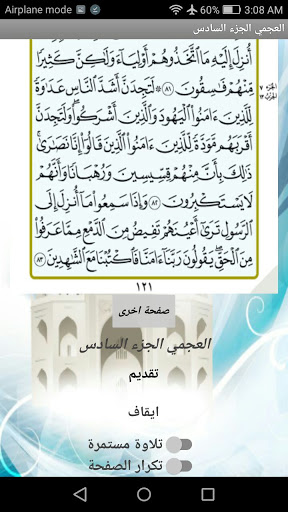 Airplane mode 72% 3:08 AM
العجمي الجزء السادس
أُنزِلَ إِلَيْهِ مَا ٱتَّخَذُوهُمْ أَوْلِيَآءَ وَلَٰكِنَّ كَثِيرًا
مِّنْهُمْ فَٰسِقُونَ ٨١ ۞ لَتَجِدَنَّ أَشَدَّ ٱلنَّاسِ عَدَٰوَةً
لِّلَّذِينَ ءَامَنُوا۟ ٱلْيَهُودَ وَٱلَّذِينَ أَشْرَكُوا۟ وَلَتَجِدَنَّ
أَقْرَبَهُم مَّوَدَّةً لِّلَّذِينَ ءَامَنُوا۟ ٱلَّذِينَ قَالُوٓا۟ إِنَّا نَصَٰرَىٰ
ذَٰلِكَ بِأَنَّ مِنْهُمْ قِسِّيسِينَ وَرُهْبَانًا وَأَنَّهُمْ
لَا يَسْتَكْبِرُونَ ٨٢ وَإِذَا سَمِعُوا۟ مَآ أُنزِلَ إِلَى
ٱلرَّسُولِ تَرَىٰٓ أَعْيُنَهُمْ تَفِيضُ مِنَ ٱلدَّمْعِ مِمَّا عَرَفُوا۟
مِنَ ٱلْحَقِّ يَقُولُونَ رَبَّنَآ ءَامَنَّا فَٱكْتُبْنَا مَعَ ٱلشَّٰهِدِينَ ٨٣
١٢١
صفحة اخرى
العجمي الجزء السادس
تقديم
ايقاف
تلاوة مستمرة
تكرار الصفحة